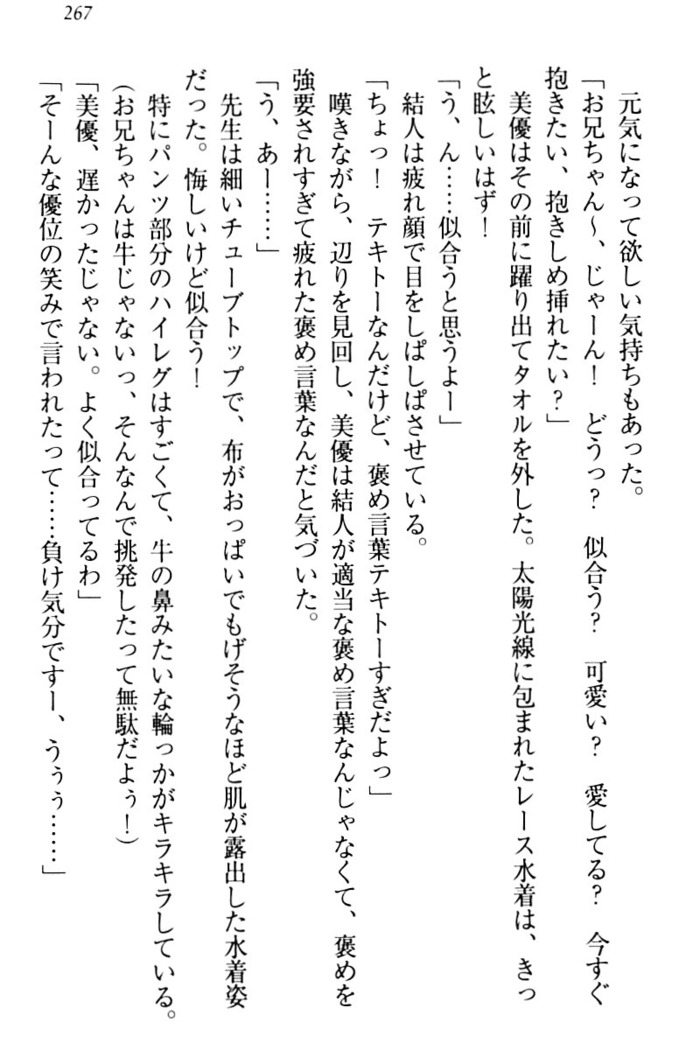 267
元気になって欲しい気持ちもあった。
「お兄ちゃん～、じゃーん！　どうっ？　似合う？　可愛い？　愛してる？　今すぐ
抱きたい、抱きしめ挿れたい？」
美優はその前に躍り出てタオルを外した。太陽光線に包まれたレース水着は、きっ
と眩しいはず！
「う、ん……似合うと思うよー」
結人は疲れ顔で目をしぱしぱさせている。
「ちょっ！　テキトーなんだけど、褒め言葉テキトーすぎだよっ」
嘆きながら、辺りを見回し、美優は結人が適当な褒め言葉なんじゃなくて、褒めを
強要されすぎて疲れた褒め言葉なんだと気づいた。
「う、あー……」
先生は細いチューブトップで、布がおっぱいでもげそうなほど肌が露出した水着姿
だった。悔しいけど似合う！
特にパンツ部分のハイレグはすごくて、牛の鼻みたいな輪っかがキラキラしている。
（お兄ちゃんは牛じゃないっ、そんなんで挑発したって無駄だよぅ！）
「美優、遅かったじゃない。よく似合ってるわ」
「そーんな優位の笑みで言われたって……負け気分ですー、うぅぅ……」